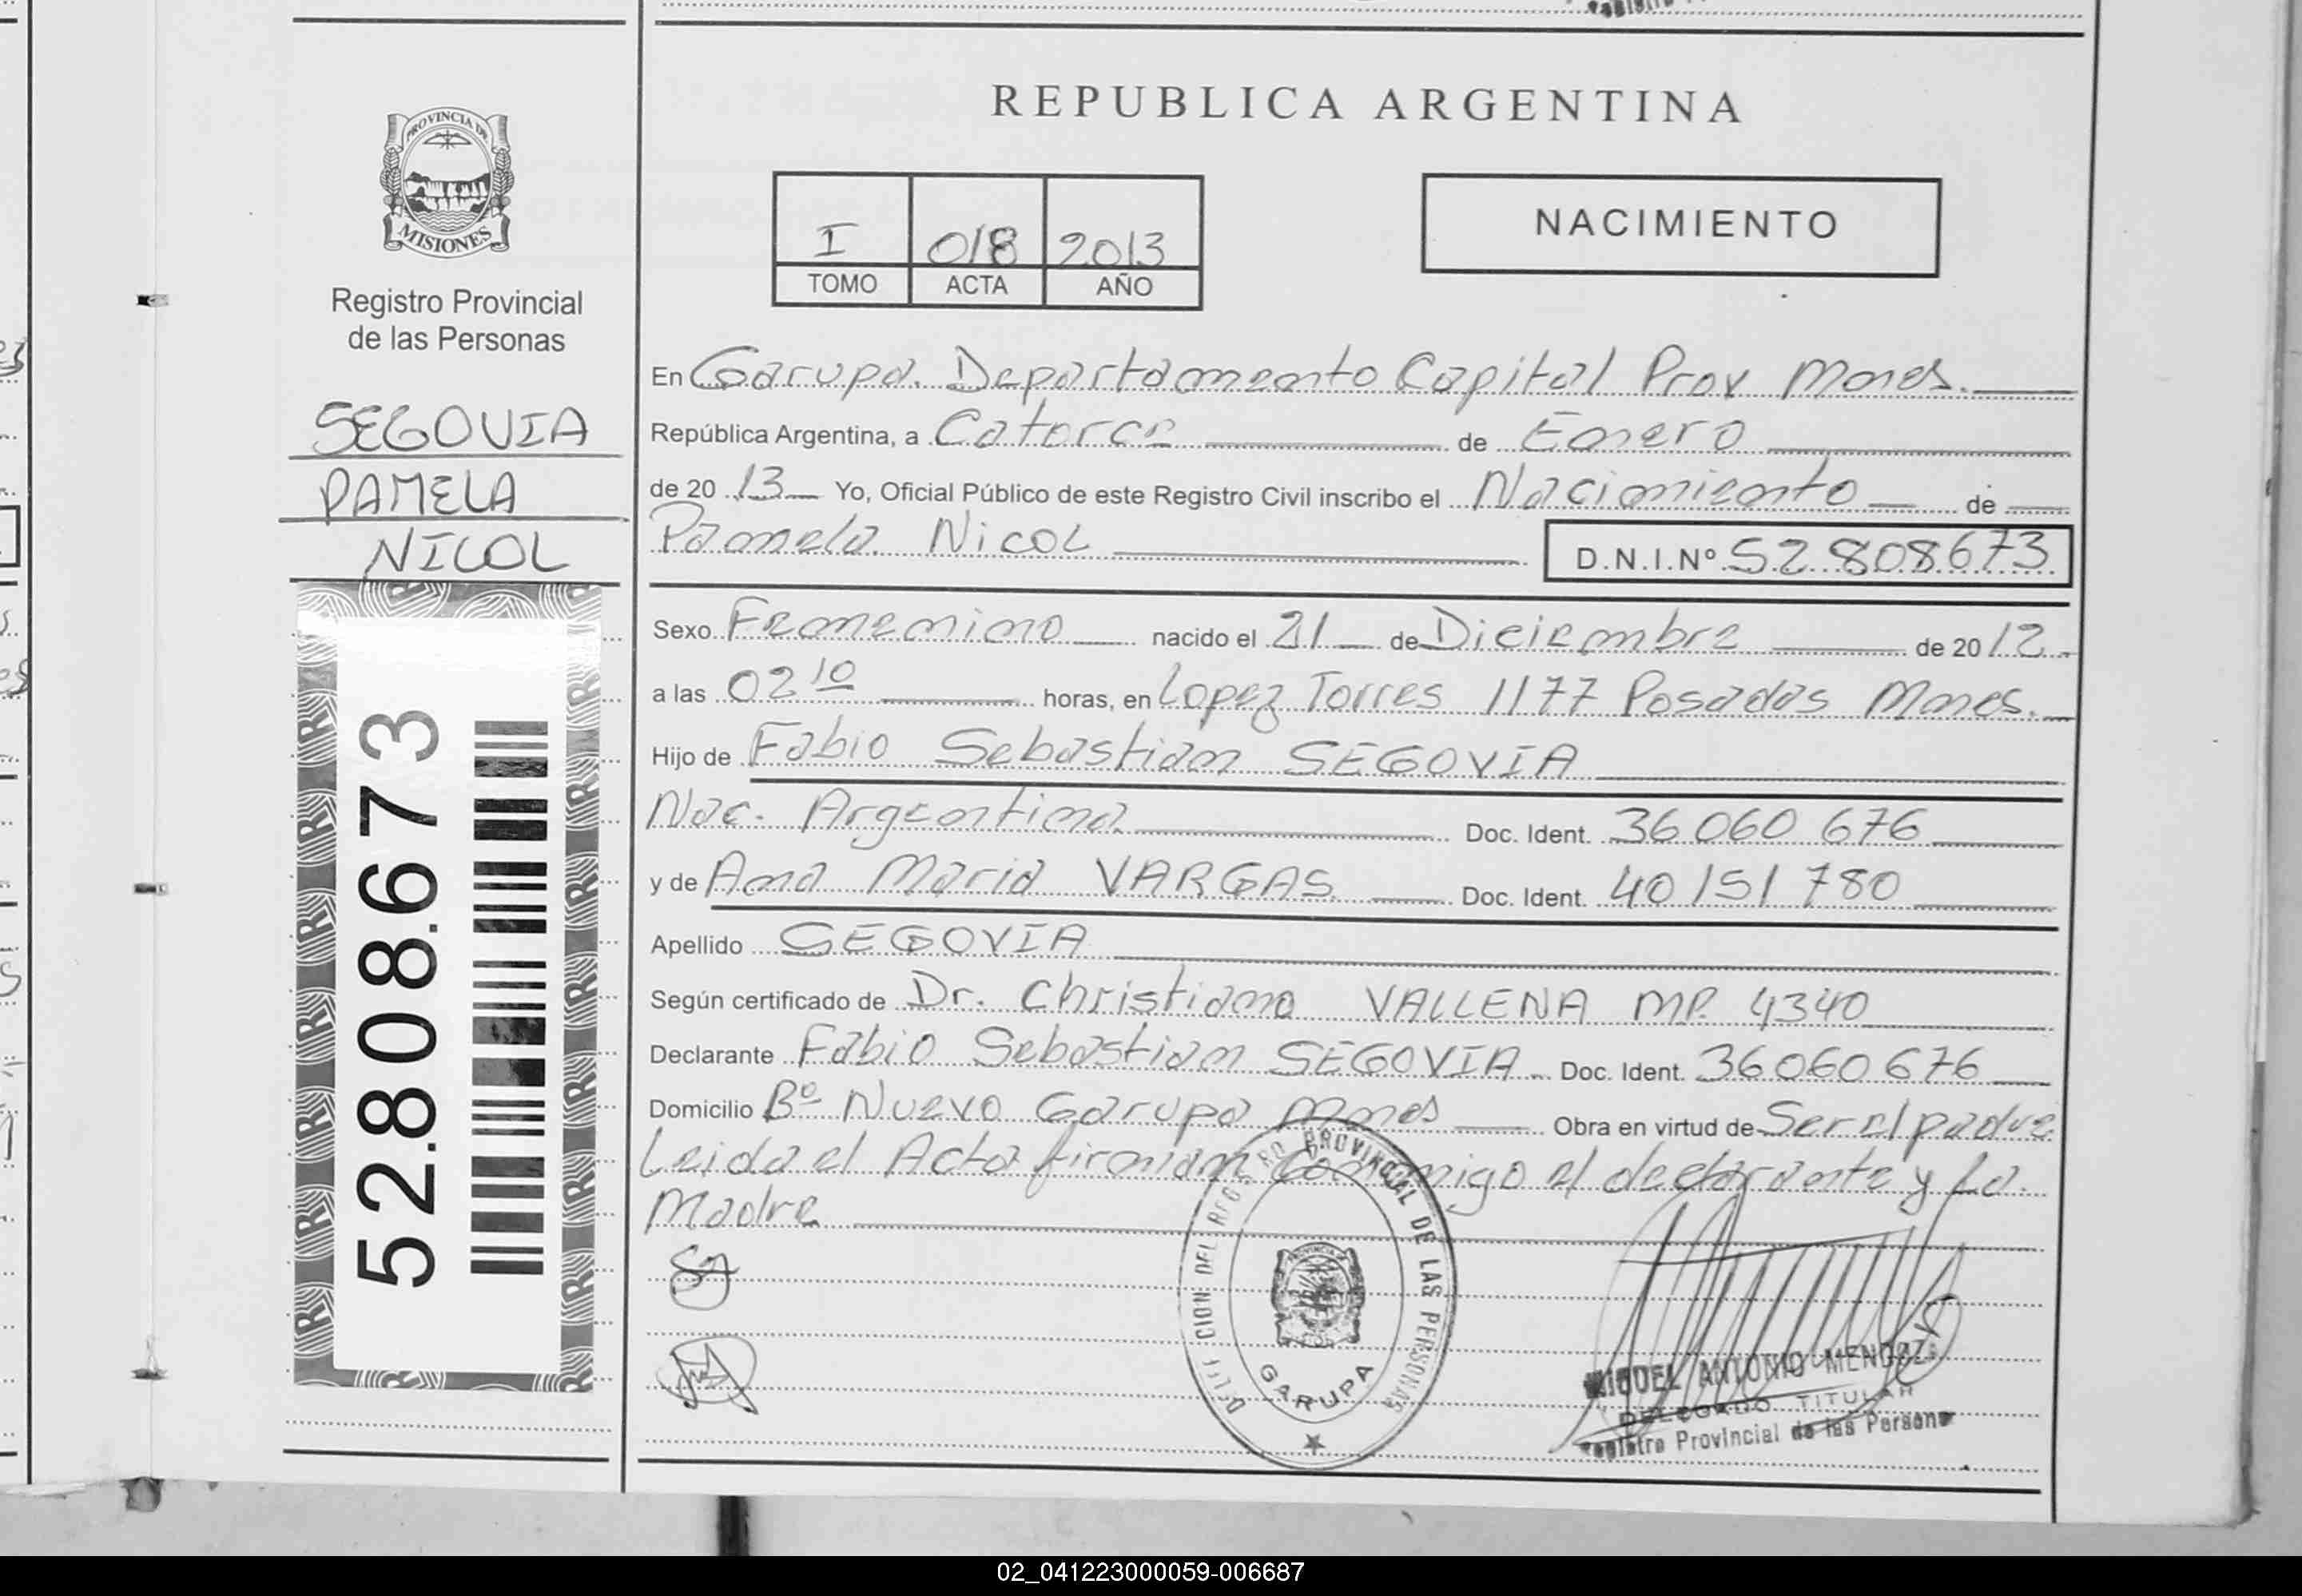 REPUBLICA ARGENTINA
PROVINCIA DE
MISIONES
Registro Provincial
de las Personas
SEGOVIA
PAMELA
NICOL
52.808.673
I 018 2013
TOMO ACTA AÑO
NACIMIENTO
En Garupa. Departamento Capital Prov Mnes.
República Argentina, a Catorce de Enero
de 20 13 Yo, Oficial Público de este Registro Civil inscribo el Nacimiento de
Pamela Nicol
D.N.I.Nº 52.808673
Sexo Femenino nacido el 21 de Diciembre de 20 12
a las 02 10 horas, en Lopez Torres 1177 Posadas Mnes.
Hijo de Fabio Sebastian SEGOVIA
Nac. Argentina Doc. Ident. 36 060 676
y de Ana Maria VARGAS. Doc. Ident. 40 151 780
Apellido SEGOVIA
Según certificado de Dr. Christiano VALLENA MP. 4340
Declarante Fabio Sebastian SEGOVIA Doc. Ident. 36 060 676
Domicilio Bº Nuevo Garupa Mnes Obra en virtud de Ser el padre
Leida el Acta firman conmigo el declarante y La
Madre
PROVINCIAL DE LAS PERSONAS
GARUPA
MIGUEL ANTONIO MENDOZA
DELEGADO TITULAR
Registro Provincial de las Persona
02_041223000059-006687